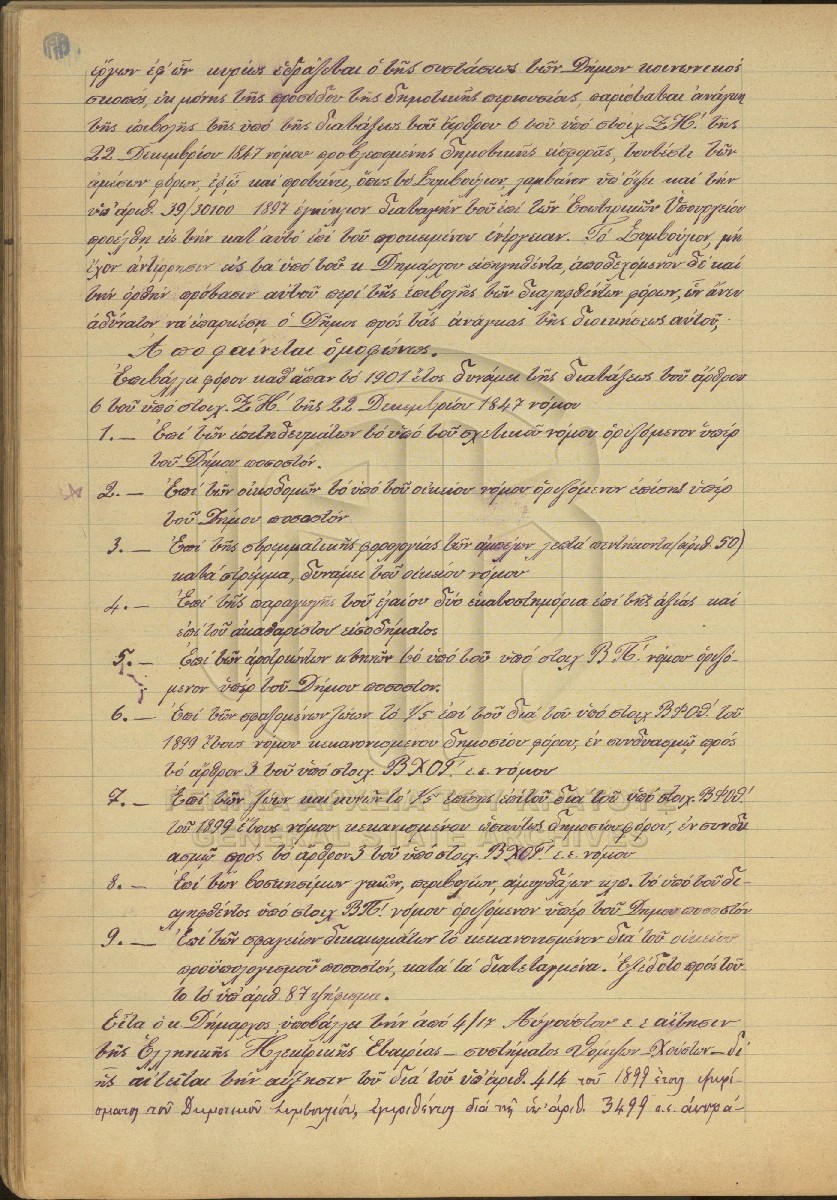 ἔργων ἐφ' ὧν κυρίως ἑδράζεται ὁ τῆς συστάσεως τῶν Δήμων κοινωνικός
σκοπός, ἐκ μόνης τῆς προσόδου τῆς δημοτικῆς περιουσίας, παρίσταται ἀνάγκη
τῆς ἐπιβολῆς τῆς ὑπό τῆς διατάξεως τοῦ ἄρθρου 6 τοῦ ὑπό στοιχ. ΖΗ! τῆς
22 Δεκεμβρίου 1847 νόμου προβλεπομένης δημοτικῆς εἰσφορᾶς, τουτέστι τῶν
ἀμέσων φόρων, ἐφ' ᾧ καί προτείνει, ὅπως τό Συμβούλιον, λαμβάνον ὑπ' ὄψει καί τήν
ὑπ' ἀριθ. 39/30100 1897 ἐγκύκλιον διαταγήν τοῦ ἐπί τῶν Ἐσωτερικῶν Ὑπουργείου
προέλθῃ εἰς τήν κατ' αὐτό ἐπί τοῦ προκειμένου ἐνέργειαν. Τό Συμβούλιον, μή
ἔχον ἀντίρρησιν εἰς τά ὑπό τοῦ κ Δημάρχου εἰσηγηθέντα, ἀποδεχόμενον δέ καί
τήν ὀρθήν πρότασιν αὐτοῦ περί τῆς ἐπιβολῆς τῶν διαληφθέντων φόρων, ὧν ἄνευ
ἀδύνατον νά ἐπαρκέσῃ ὁ Δῆμος πρός τάς ἀνάγκας τῆς διοικήσεως αὐτοῦ,
Ἀποφαίνεται ὁμοφώνως.
Ἐπιβάλλει φόρον καθ' ἅπαν τό 1901 ἔτος δυνάμει τῆς διατάξεως τοῦ ἄρθρου
6 τοῦ ὑπό στοιχ. ΖΗ! τῆς 22 Δεκεμβρίου 1847 νόμου
1. — Ἐπί τῶν ἐπιτηδευμάτων τό ὑπό τοῦ σχετικοῦ νόμου ὁριζόμενον ὑπέρ
τοῦ Δήμου ποσοστόν.
2. — Ἐπί τῶν οἰκοδομῶν τό ὑπό τοῦ οἰκείου νόμου ὁριζόμενον ἐπίσης ὑπέρ
τοῦ Δήμου ποσοστόν
3. — Ἐπί τῆς στρεμματικῆς φορολογίας τῶν ἀμπέλων λεπτά πεντήκοντα (ἀριθ. 50)
κατά στρέμμα, δυνάμει τοῦ οἰκείου νόμου
4. — Ἐπί τῆς παραγωγῆς τοῦ ἐλαίου δύο ἑκατοστημόρια ἐπί τῆς ἀξίας καί
ἐπί τοῦ ἀκαθαρίστου εἰσοδήματος
5. — Ἐπί τῶν ἀροτριώντων κτηνῶν τό ὑπό τοῦ ὑπό στοιχ ΒΠ! νόμου ὁριζό-
μενον ὑπέρ τοῦ Δήμου ποσοστόν.
6. — Ἐπί τῶν σφαζομένων ζώων τό 1/5 ἐπί τοῦ διά τοῦ ὑπό στοιχ ΒΨΟθ! τοῦ
1899 ἔτους νόμου κεκανονισμένου δημοσίου φόρου, ἐν συνδυασμῷ πρός
τό ἄρθρον 3 τοῦ ὑπό στοιχ. ΒΧΟΓ! ε.ε. νόμου
7. — Ἐπί τῶν ζώων καί κτηνῶν τό 1/5 ἐπίσης ἐπί τοῦ διά τοῦ ὑπό στοιχ. ΒΨΟθ!
τοῦ 1899 ἔτους νόμου κεκανισμένου ὡσαύτως δημοσίου φόρου, ἐν συνδυ-
ασμῷ πρός τό ἄρθρον 3 τοῦ ὑπό στοιχ. ΒΧΟΓ! ε.ε. νόμου
8. — Ἐπί τῶν βοσκησίμων γαιῶν, περιβολίων, ἀμυγδάλων κλπ. τό ὑπό τοῦ δι-
αληφθέντος ὑπό στοιχ ΒΠ! νόμου ὁριζόμενον ὑπέρ τοῦ Δήμου ποσοστόν
9. — Ἐπί τῶν σφαγείων δικαιωμάτων τό κεκανονισμένον διά τοῦ οἰκείου
προϋπολογισμοῦ ποσοστόν, κατά τά διατεταγμένα. Ἐξεδόθη πρός τοῦ-
το τό ὑπ' ἀριθ. 87 ψήφισμα.
Εἶτα ὁ κ Δήμαρχος ὑποβάλλει τήν ἀπό 4/17 Αὐγούστου ε.ε αἴτησιν
τῆς Ἑλληνικῆς Ἠλεκτρικῆς Ἑταιρίας — συστήματος Θόμψων-Χούστων — δι'
ἧς αἰτεῖται τήν αὔξησιν τοῦ διά τοῦ ὑπ' ἀριθ. 414 τοῦ 1899 ἔτους ψηφί-
σματος τοῦ Δημοτικοῦ Συμβουλίου, ἐγκριθέντος διά τῆς ὑπ' ἀριθ. 3499 ε.ε.
ΓΕΝΙΚΑ ΑΡΧΕΙΑ ΤΟΥ ΚΡΑΤΟΥΣ
GENERAL STATE ARCHIVES